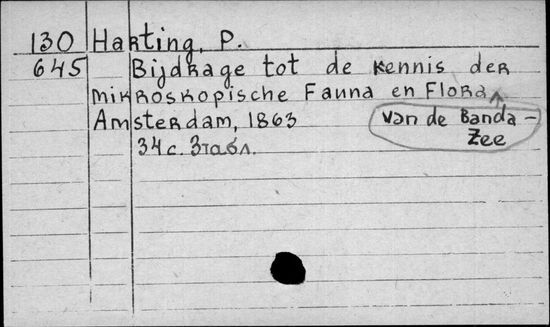 130 Harting, P.
645 Bijdrage tot de kennis der
mikroskopische Fauna en Flora
van de Banda-
Zee
Amsterdam, 1863
34 с. 3 табл.